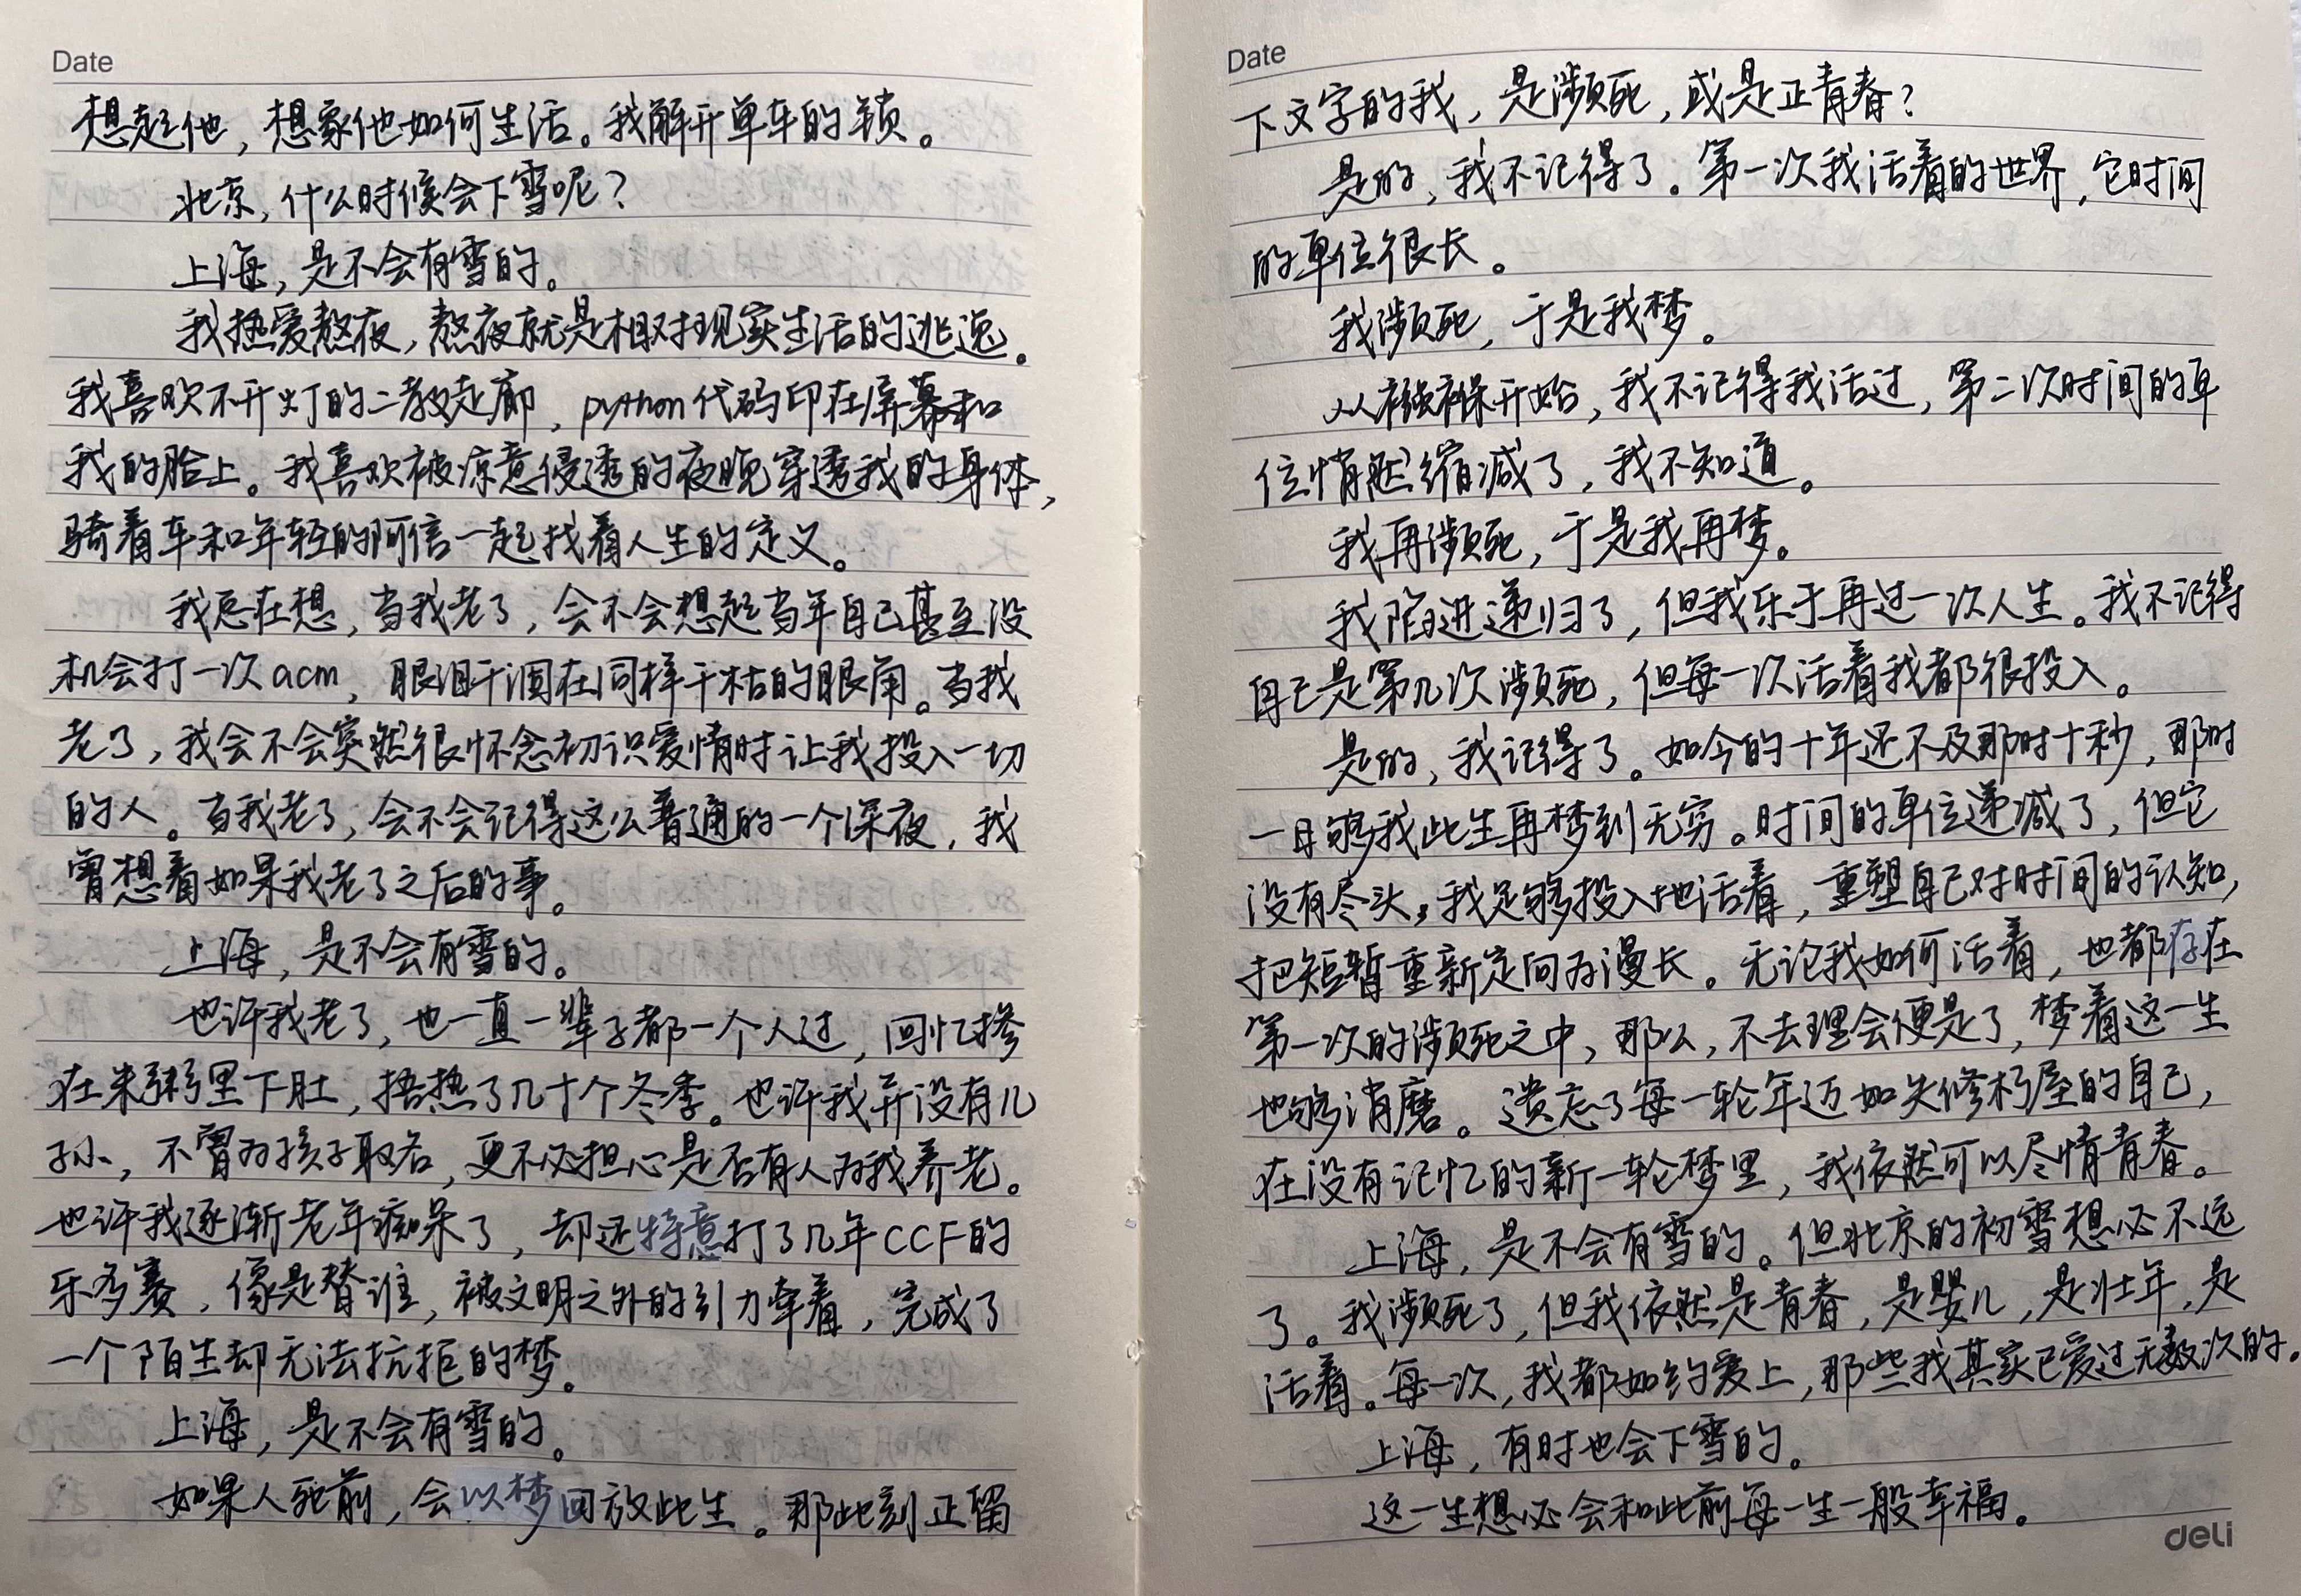 Date
想起他，想象他如何生活。我解开单车的锁。
北京，什么时候会下雪呢？
上海，是不会有雪的。
我热爱熬夜，熬夜就是相对现实生活的逃逸。
我喜欢不开灯的二教走廊，python代码印在屏幕和
我的脸上。我喜欢被凉意侵透的夜晚穿透我的身体，
骑着车和年轻的阿信一起找着人生的定义。
我总在想，当我老了，会不会想起当年自己甚至没
机会打一次acm，眼泪干涸在同样干枯的眼角。当我
老了，我会不会突然很怀念初识爱情时让我投入一切
的人。当我老了，会不会记得这么普通的一个深夜，我
曾想着如果我老了之后的事。
上海，是不会有雪的。
也许我老了，也一直一辈子都一个人过，回忆掺
在米粥里下肚，捂热了几十个冬季。也许我并没有儿
孙，不曾为孩子取名，更不必担心是否有人为我养老。
也许我逐渐老年痴呆了，却还特意打了几年CCF的
乐多赛，像是替谁，被文明之外的引力牵着，完成了
一个陌生却无法抗拒的梦。
上海，是不会有雪的。
如果人死前，会以梦回放此生。那此刻正留
Date
下文字的我，是濒死，或是正青春？
是的，我不记得了。第一次我活着的世界，它时间
的单位很长。
我濒死，于是我梦。
从襁褓开始，我不记得我活过，第二次时间的单
位悄然缩减了，我不知道。
我再濒死，于是我再梦。
我陷进递归了，但我乐于再过一次人生。我不记得
自己是第几次濒死，但每一次活着我都很投入。
是的，我记得了。如今的十年还不及那时十秒，那时
一日够我此生再梦到无穷。时间的单位递减了，但它
没有尽头，我足够投入地活着，重塑自己对时间的认知，
把短暂重新定向为漫长。无论我如何活着，也都存在
第一次的濒死之中，那么，不去理会便是了，梦着这一生
也够消磨。遗忘了每一轮年迈如失修朽屋的自己，
在没有记忆的新一轮梦里，我依然可以尽情青春。
上海，是不会有雪的。但北京的初雪想必不远
了。我濒死了，但我依然是青春，是婴儿，是壮年，是
活着。每一次，我都如约爱上，那些我其实已爱过无数次的。
上海，有时也会下雪的。
这一生想必会和此前每一生一般幸福。
deli